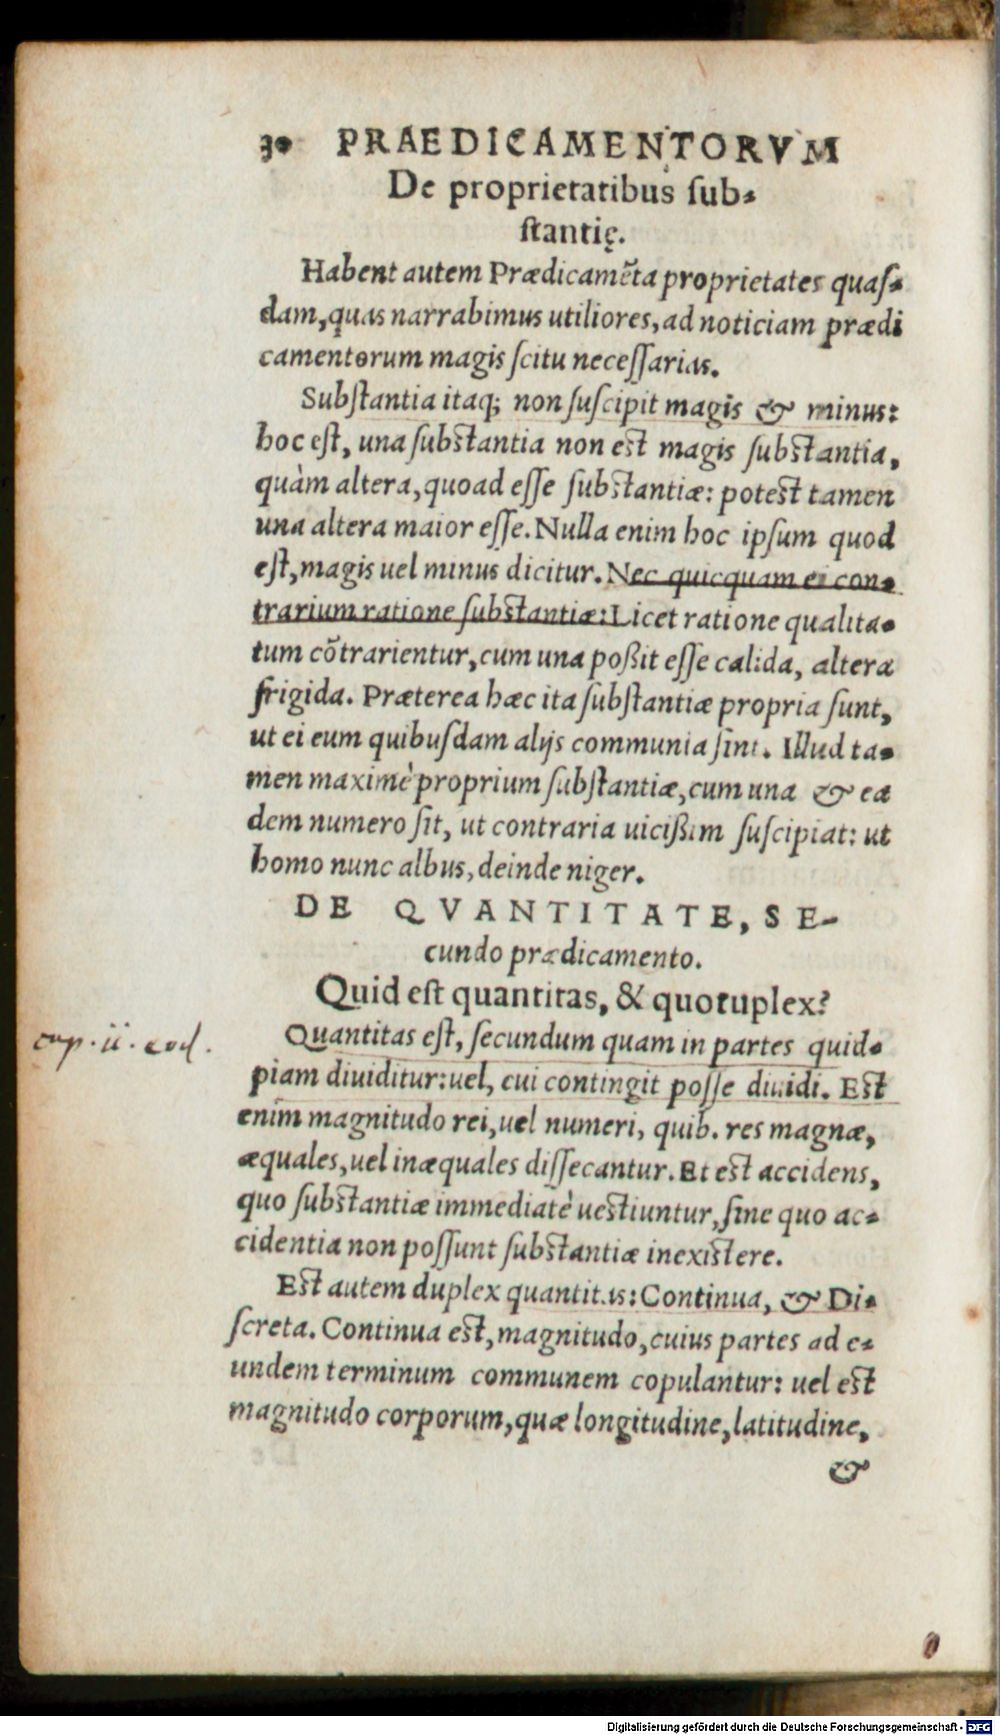 30 PRAEDICAMENTORVM
De proprietatibus sub-
stantię.
Habent autem Prædicamẽta proprietates quas-
dam, quas narrabimus utiliores, ad noticiam prædi
camentorum magis scitu necessarias.
Substantia itaq; non suscipit magis & minus:
hoc est, una substantia non est magis substantia,
quàm altera, quoad esse substantiæ: potest tamen
una altera maior esse. Nulla enim hoc ipsum quod
est, magis uel minus dicitur. Nec quicquam ei con-
trarium ratione substantiæ: Licet ratione qualita-
tum cõtrarientur, cum una poßit esse calida, altera
frigida. Præterea hæc ita substantiæ propria sunt,
ut ei eum quibusdam alijs communia sint. Illud ta-
men maximè proprium substantiæ, cum una & ea
dem numero sit, ut contraria uicißim suscipiat: ut
homo nunc albus, deinde niger.
DE QVANTITATE, SE-
cundo prædicamento.
Quid est quantitas, & quotuplex?
cap. ii. eod.
Quantitas est, secundum quam in partes quid-
piam diuiditur: uel, cui contingit posse diuidi. Est
enim magnitudo rei, uel numeri, quib. res magnæ,
æquales, uel inæquales dissecantur. Et est accidens,
quo substantiæ immediatè uestiuntur, sine quo ac-
cidentia non possunt substantiæ inexistere.
Est autem duplex quantitas: Continua, & Di-
screta. Continua est, magnitudo, cuius partes ad e-
undem terminum communem copulantur: uel est
magnitudo corporum, quæ longitudine, latitudine,
&
Digitalisierung gefördert durch die Deutsche Forschungsgemeinschaft - DFG